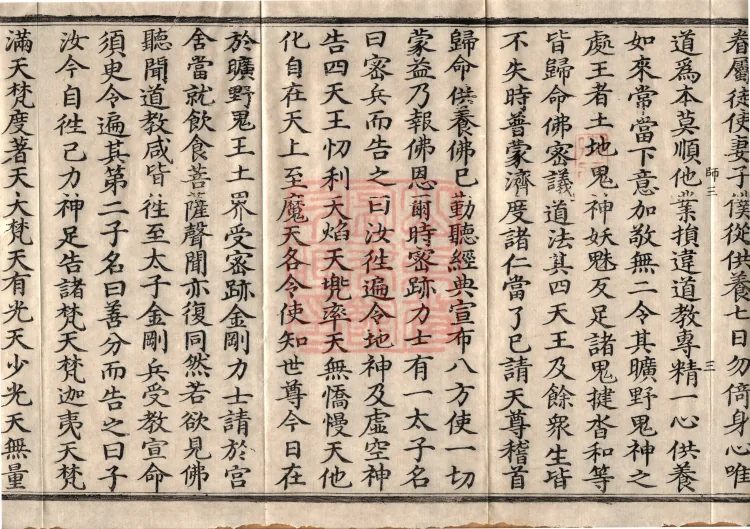 眷屬徒使妻子僕從供養七日勿倚身心唯
道爲本莫順他業損違道教專精一心供養
師三
三
如來常當下意加敬無二令其曠野鬼神之
處王者土地鬼神妖魅反足諸鬼揵沓和等
皆歸命佛審議道法其四天王及餘衆生皆
不失時普蒙濟度諸仁當了已請天尊稽首
歸命供養佛已勤聽經典宣布八方使一切
蒙益乃報佛恩爾時密跡力士有一太子名
曰密兵而告之曰汝往遍令地神及虛空神
告四天王忉利天焰天兜率天無憍慢天他
化自在天上至魔天各令使知世尊今日在
於曠野鬼王土界受密跡金剛力士請於宮
舍當就飲食菩薩聲聞亦復同然若欲見佛
聽聞道教咸皆往至太子金剛兵受教宣命
須臾令遍其第二子名曰善分而告之曰子
汝今自往己力神足告諸梵天梵迦夷天梵
滿天梵度著天大梵天有光天少光天無量